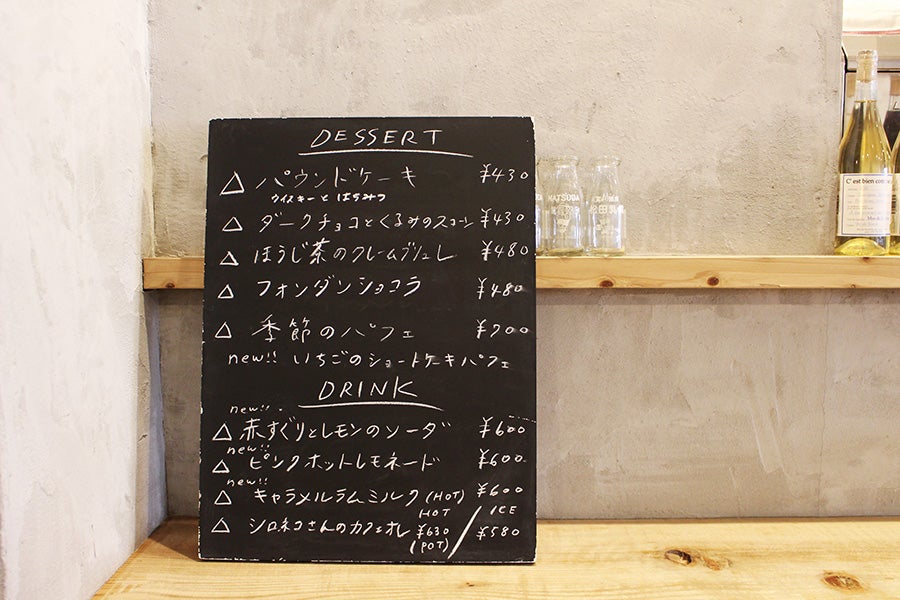 DESSERT
△ パウンドケーキ ¥430
ウイスキーとはちみつ
△ ダークチョコとくるみのスコーン ¥430
△ ほうじ茶のクレームブリュレ ¥480
△ フォンダンショコラ ¥480
△ 季節のパフェ ¥700
new!! いちごのショートケーキパフェ
DRINK
new!!
△ 赤すぐりとレモンのソーダ ¥600
new!!
△ ピンクホットレモネード ¥600
new!!
△ キャラメルラムミルク (HOT) ¥600
HOT / ICE
△ シロネコさんのカフェオレ ¥630 / ¥580
(POT)
MATSUDA
C'est bien com